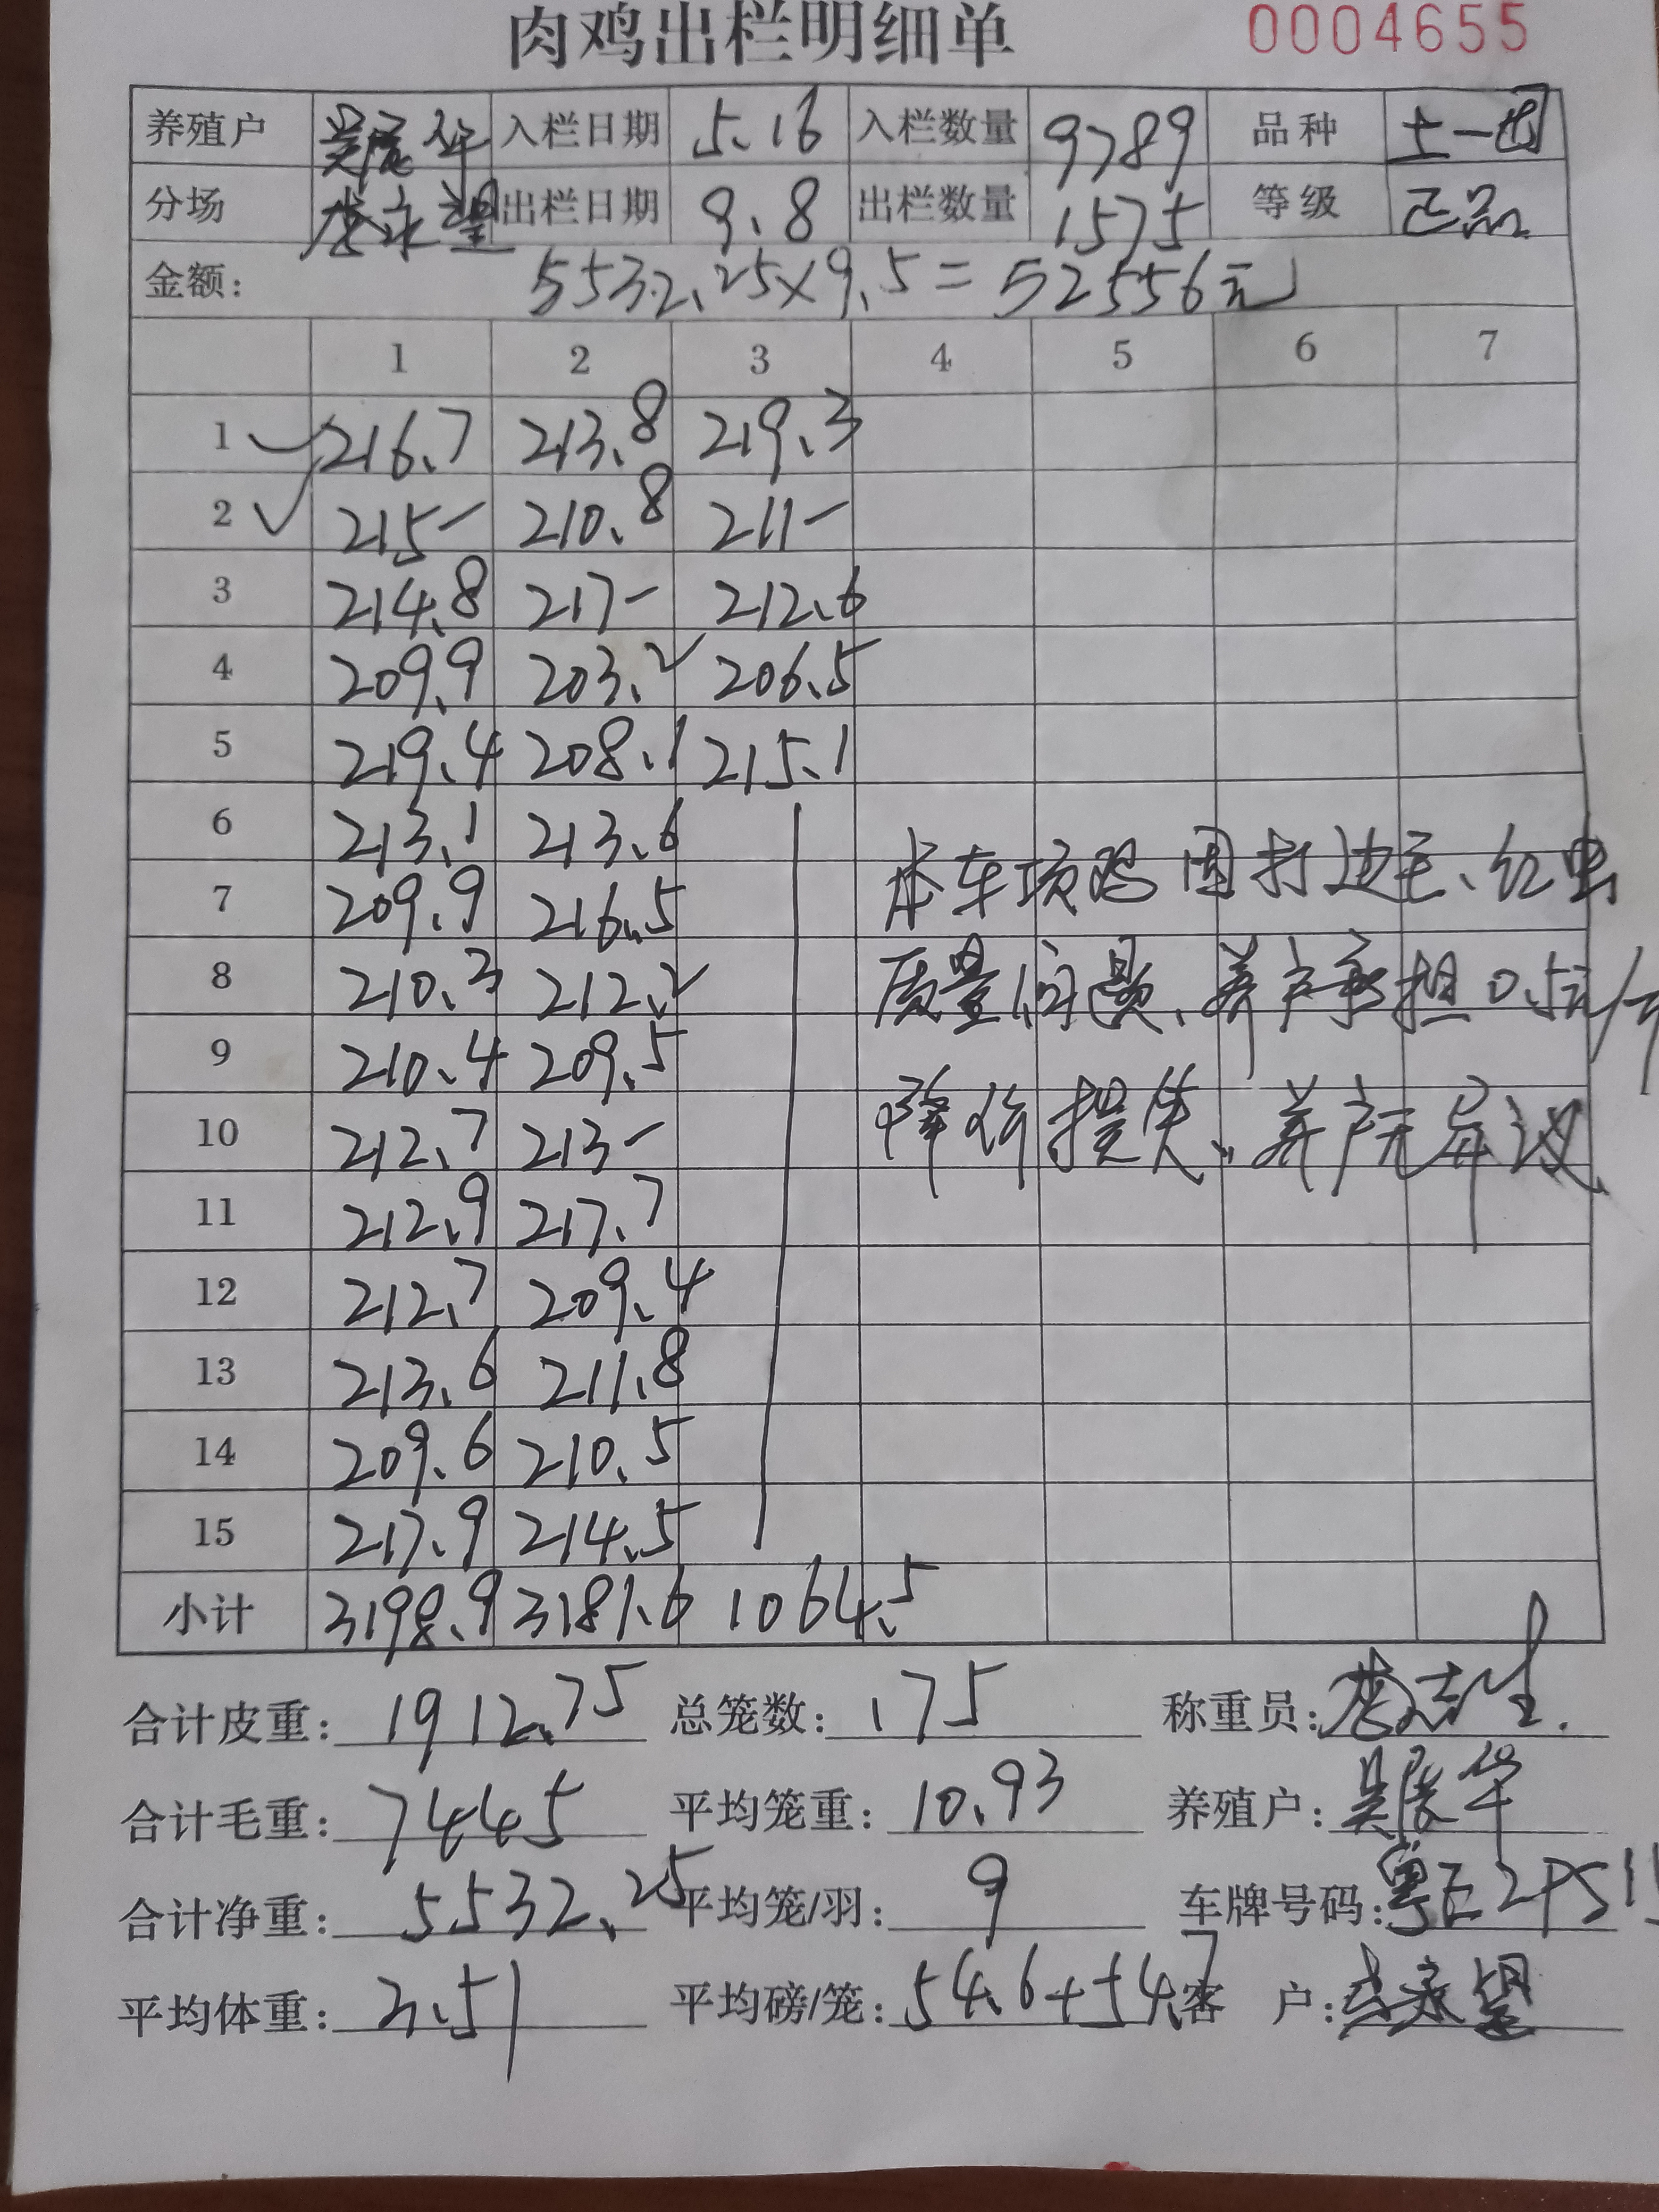 肉鸡出栏明细单 0004655
养殖户 入栏日期 5.16 入栏数量 9789 品种 土一
分场 出栏日期 9.8 出栏数量 1575 等级 正品
金额: 5532.25×9.5=52556元
1 2 3 4 5 6 7
1 216.7 213.8 219.3
2 215- 210.8 211-
3 214.8 217- 212.6
4 209.9 203.2 206.5
5 219.4 208.1 215.1
6 213.1 213.6
7 209.9 216.5
8 210.3 212.2
9 210.4 209.5
10 212.7 213-
11 212.9 217.7
12 212.7 209.4
13 213.6 211.8
14 209.6 210.5
15 217.9 214.5
小计 3198.9 3181.6 1064.5
本车项鸡因打边毛、红虫
质量问题、养户承担0.5元/斤
降价损失、养户无异议
合计皮重: 1912.75 总笼数: 175 称重员:
合计毛重: 7445 平均笼重: 10.93 养殖户:
合计净重: 5532.25 平均笼/羽: 9 车牌号码:
平均体重: 3.51 平均磅/笼: 54.6+54.7 客 户: